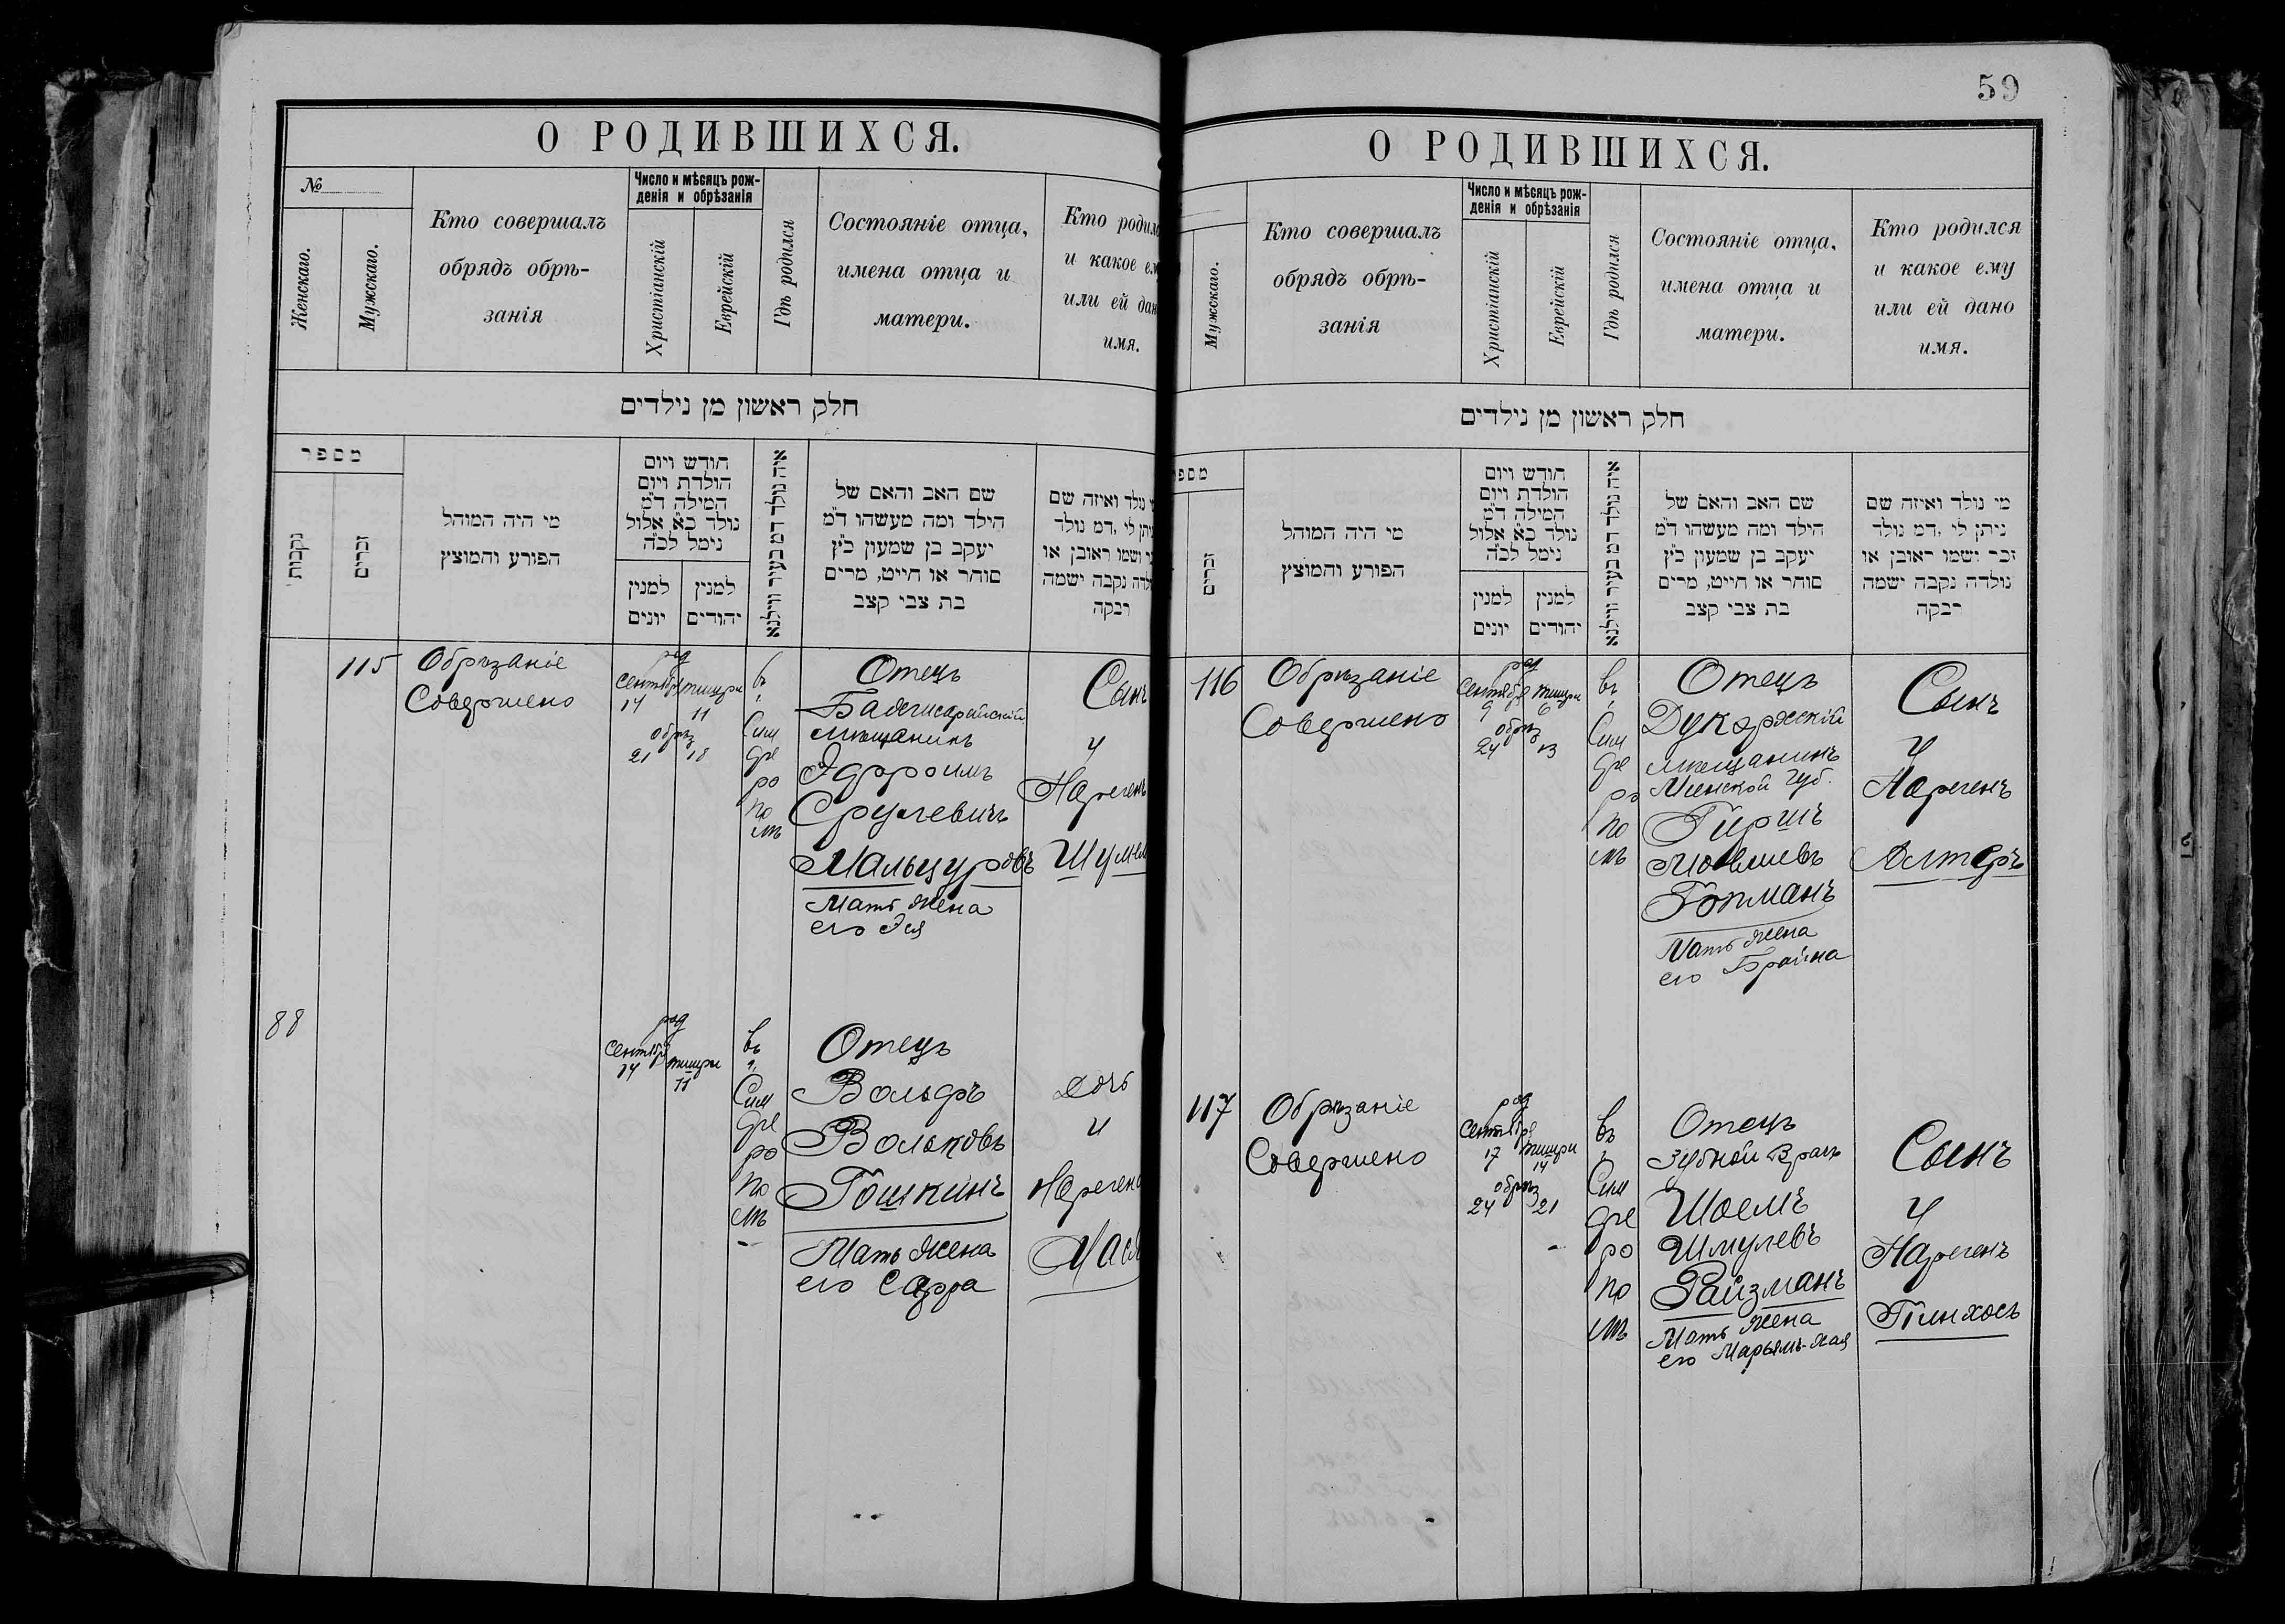 59
О РОДИВШИХСЯ.
№
Женскаго.
Мужскаго.
Кто совершалъ
обрядъ обрѣ-
занія
Число и мѣсяцъ рож-
денія и обрѣзанія
Христіанскій
Еврейскій
Гдѣ родился
Состояніе отца,
имена отца и
матери.
Кто родил
и какое ем
или ей дан
имя.
חלק ראשון מן נילדים
מספר
נקבות
זכרים
מי היה המוהל
הפורע והמוצץ
חודש ויום
הולדת ויום
המילה ד"מ
נולד כ"א אלול
נימל לכ"ה
למנין
יונים
למנין
יהודים
איה נולד דמ בעיר ווילנא
שם האב והאם של
הילד ומה מעשהו ד"מ
יעקב בן שמעון כ"ץ
סוחר או חייט, מרים
בת צבי קצב
נולד ואיזה שם
יתן לי ,דמ נולד
ושמו ראובן או
נקבה ישמה
רבקה
115
Обрѣзаніе
Совершено
род
Сентябр Тишри
14 11
обрѣз
21 18
въ
г.
Сим
фе
ро
по
лѣ
Отецъ
мѣщанинъ
Эфроимъ
Срулевичъ
Мать жена
его Эся
Сынъ
и
Нареченъ
88
род
Сентябр Тишри
14 11
въ
г.
Сим
фе
ро
по
лѣ
Отецъ
Вольфъ
Вольковъ
Гошкинъ
Мать жена
его Сарра
Дочь
и
Наречена
О РОДИВШИХСЯ.
Мужскаго.
Кто совершалъ
обрядъ обрѣ-
занія
Число и мѣсяцъ рож-
денія и обрѣзанія
Христіанскій
Еврейскій
Гдѣ родился
Состояніе отца,
имена отца и
матери.
Кто родился
и какое ему
или ей дано
имя.
חלק ראשון מן נילדים
מספ
זכרים
מי היה המוהל
הפורע והמוצץ
חודש ויום
הולדת ויום
המילה ד"מ
נולד כ"א אלול
נימל לכ"ה
למנין
יונים
למנין
יהודים
איה נולד דמ בעיר ווילנא
שם האב והאם של
הילד ומה מעשהו ד"מ
יעקב בן שמעון כ"ץ
סוחר או חייט, מרים
בת צבי קצב
מי נולד ואיזה שם
ניתן לי ,דמ נולד
זכר ישמו ראובן או
נולדה נקבה ישמה
רבקה
116
Обрѣзаніе
Совершено
род
Сентябр Тишри
9 6
обрѣз
24
въ
г.
Сим
фе
ро
по
лѣ
Отецъ
мѣщанинъ
Минской губ.
Гиршъ
Мать жена
его Брайна
Сынъ
и
Нареченъ
Алтеръ
117
Обрѣзаніе
Совершено
род
Сентябр Тишри
17 14
обрѣз
24 21
въ
г.
Сим
фе
ро
по
лѣ
Отецъ
Зубной Врачъ
Шоемъ
Шмулевъ
Райзманъ
Мать жена
его Марьямъ-Хая
Сынъ
и
Нареченъ
Пинхосъ